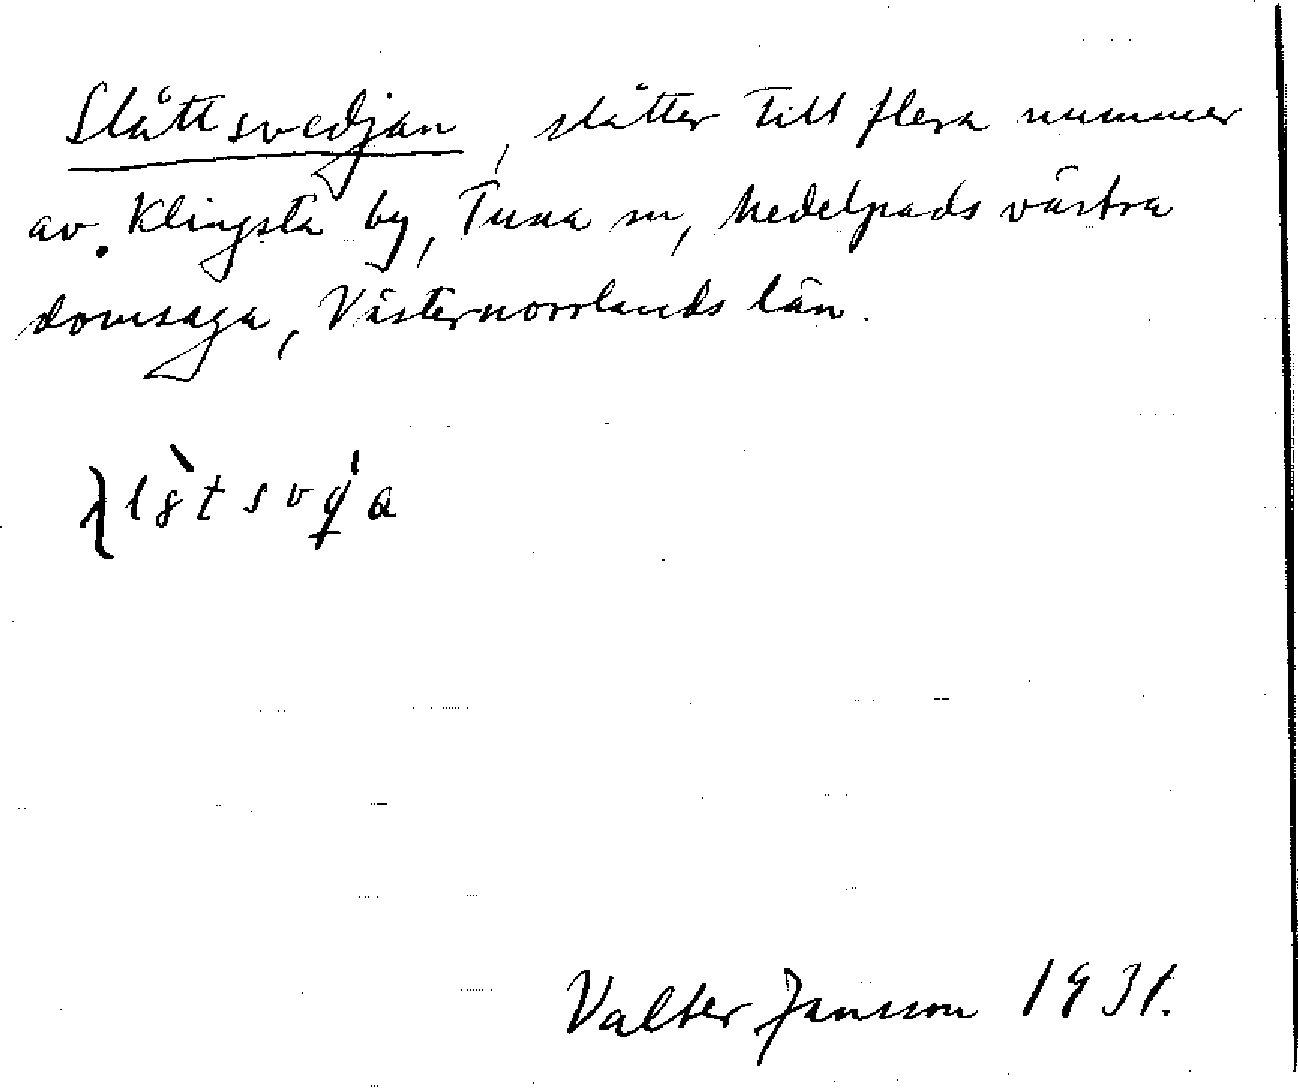 Slåttsvedjan, slåtter till flera nummer
av Klingsta by, Tuna sn, Medelpads västra
domsaga, Västernorrlands län.
Valter Jansson 1931.